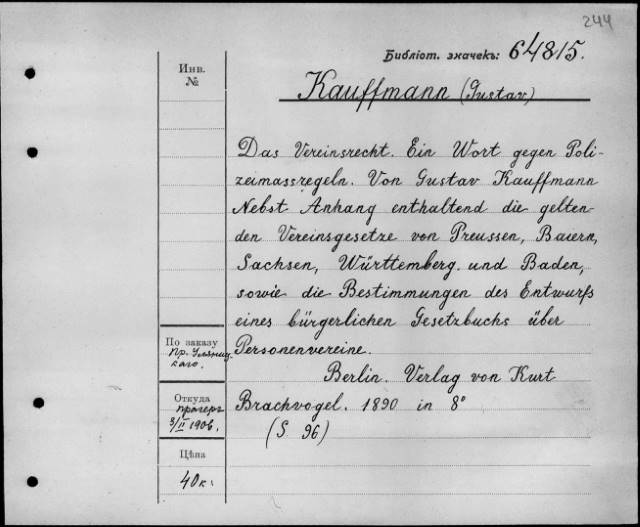 244
Библіот. значекъ: 64815.
Инв.
№
Kauffmann (Gustav)
Das Vereinsrecht. Ein Wort gegen Poli-
zeimassregeln. Von Gustav Kauffmann
Nebst Anhang enthaltend die gelten-
den Vereinsgesetze von Preussen, Baiern,
Sachsen, Württemberg und Baden,
sowie die Bestimmungen des Entwurfs
eines bürgerlichen Gesetzbuchs über
Personenvereine.
Berlin. Verlag von Kurt
Brachvogel. 1890 in 8°
(S. 96)
По заказу
пр.
каго.
Откуда
прагеръ
3/II 1906.
Цѣна
40 к: